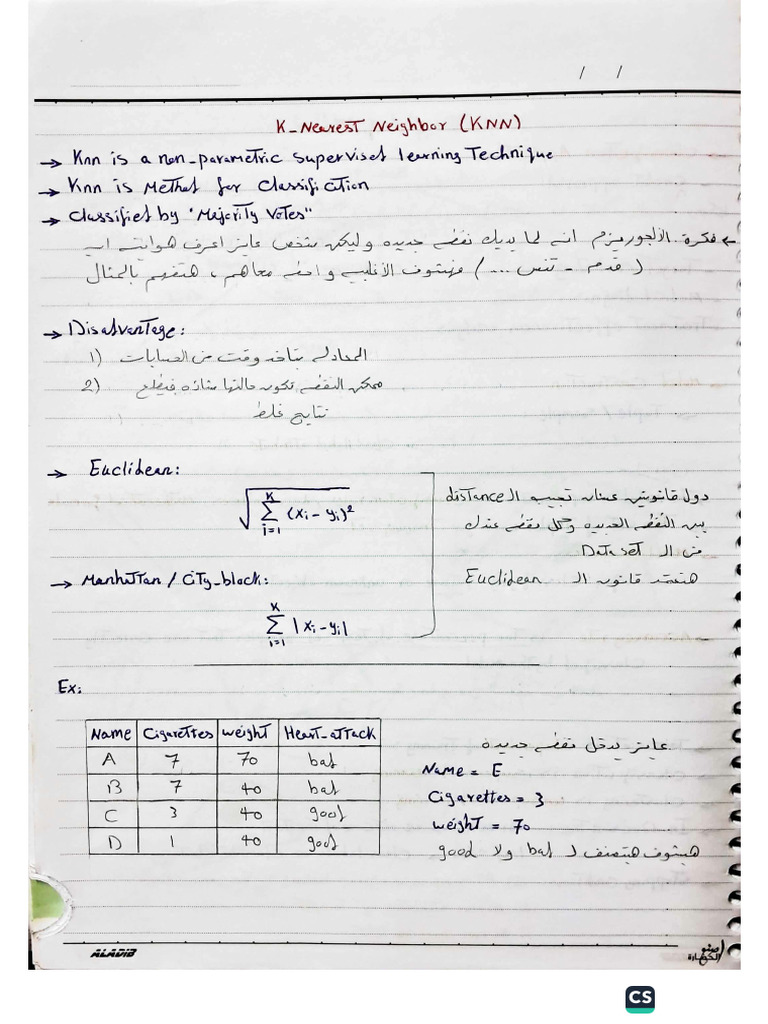 / /
K-Nearest Neighbor (KNN)
→ Knn is a non-parametric Supervised learning Technique
→ Knn is Method for Classification
→ Classified by "Majority Votes"
← فكرة الألجوريزم انه لما يديك نقطه جديده وليكن شخص عايز اعرف هوايته ايه
(قدم - تنس ...) فهشوف الأغلبيه واحطه معاهم، هتفهم بالمثال
→ Disadvantage:
1) المعادله بتاخد وقت من الحسابات
2) ممكن النقطه تكون حالتها شاذه فيطلع
نتايج غلط
→ Euclidean:
√ K Σ i=1 (xi - yi)²
دول قانونين عشان تجيب الـ distance
بين النقطه الجديده وكل نقطه عندك
من الـ Dataset
هنعتمد قانون الـ Euclidean
→ Manhattan / City-block:
K Σ i=1 |xi - yi|
Ex:
Name Cigarettes weight Heart-attack
A 7 70 bad
B 7 40 bad
C 3 40 good
D 1 40 good
عايز يدخل نقطه جديده
Name = E
Cigarettes = 3
weight = 70
هيشوف هيتصنف لـ bad ولا good
ALADIB
CS